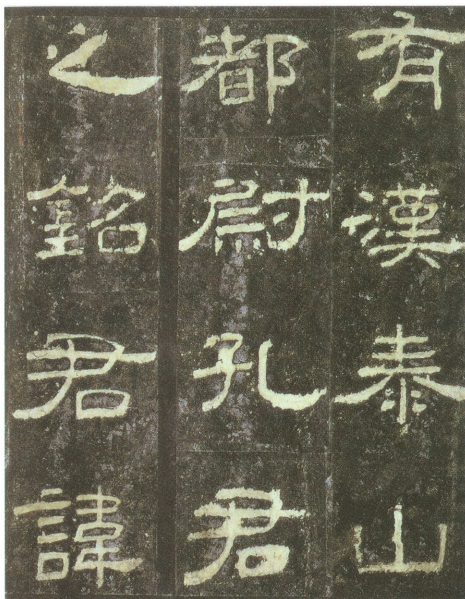 有漢泰山
都尉孔君
之銘君諱